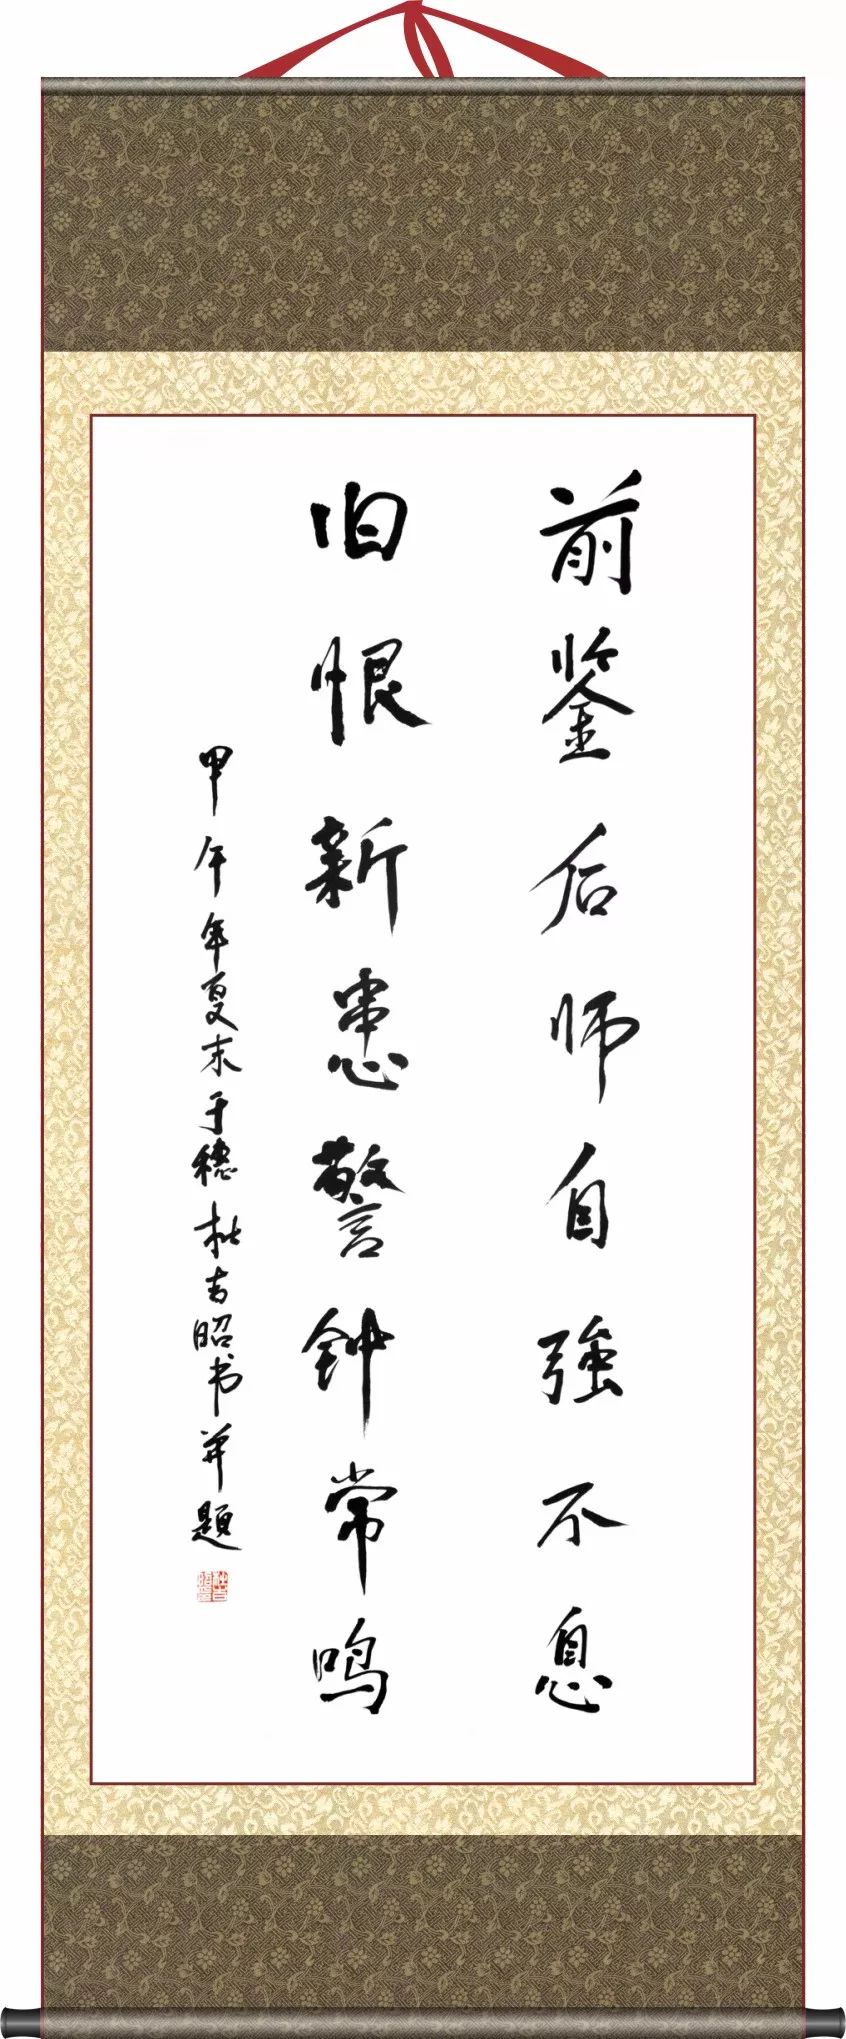 前鉴后师自強不息
旧恨新患警钟常鸣
甲午年夏末于穗杜吉昭书并题